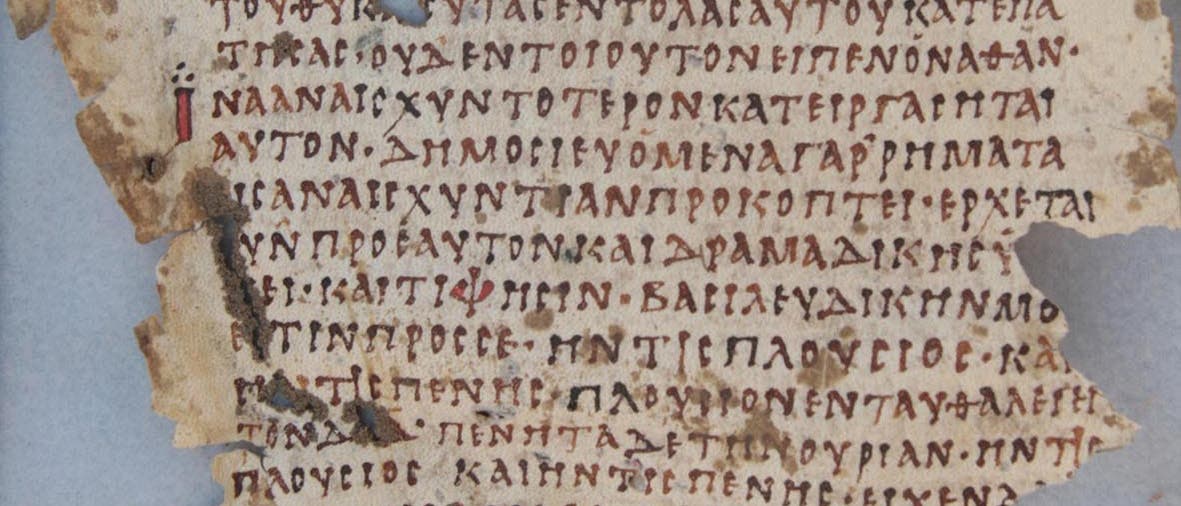 ΤΑΣΕΝΤΟΛΑΣΑΥΤΟΥΚΑΤΕΠΑ
ΤΗΣΑΣ·ΟΥΔΕΝΤΟΙΟΥΤΟΝΕΙΠΕΝΟΝΑΘΑΝ·
ΪΝΑΑΝΑΙΣΧΥΝΤΟΤΕΡΟΝΚΑΤΕΙΡΓΑΣΗΤΑΙ
ΑΥΤΟΝ·ΔΗΜΟΣΙΕΥΟΜΕΝΑΓΑΡΡΗΜΑΤΑ
ΕΙΣΑΝΑΙΣΧΥΝΤΙΑΝΠΡΟΚΟΠΤΕΙ·ΕΡΧΕΤΑΙ
ΥΝΠΡΟΣΑΥΤΟΝΚΑΙΔΡΑΜΑΔΙΚΗΣΥ
ΕΙ·ΚΑΙΤΙΦΗΣΙΝ·ΒΑΣΙΛΕΥΔΙΚΗΝΜΟ
ΕΣΤΙΝΠΡΟΣΣΕ·ΗΝΤΙΣΠΛΟΥΣΙΟΣ·ΚΑΙ
ΗΝΤΙΣΠΕΝΗΣ·ΠΛΟΥΣΙΟΝΕΝΤΑΥΘΑΛΕΓΕΙ
ΤΟΝΔΑΔ·ΠΕΝΗΤΑΔΕΤΗΝΟΥΡΙΑΝ·ΗΝΤΙΣ
ΠΛΟΥΣΙΟΣΚΑΙΗΝΤΙΣΠΕΝΗΣ·ΕΙΧΕΝ